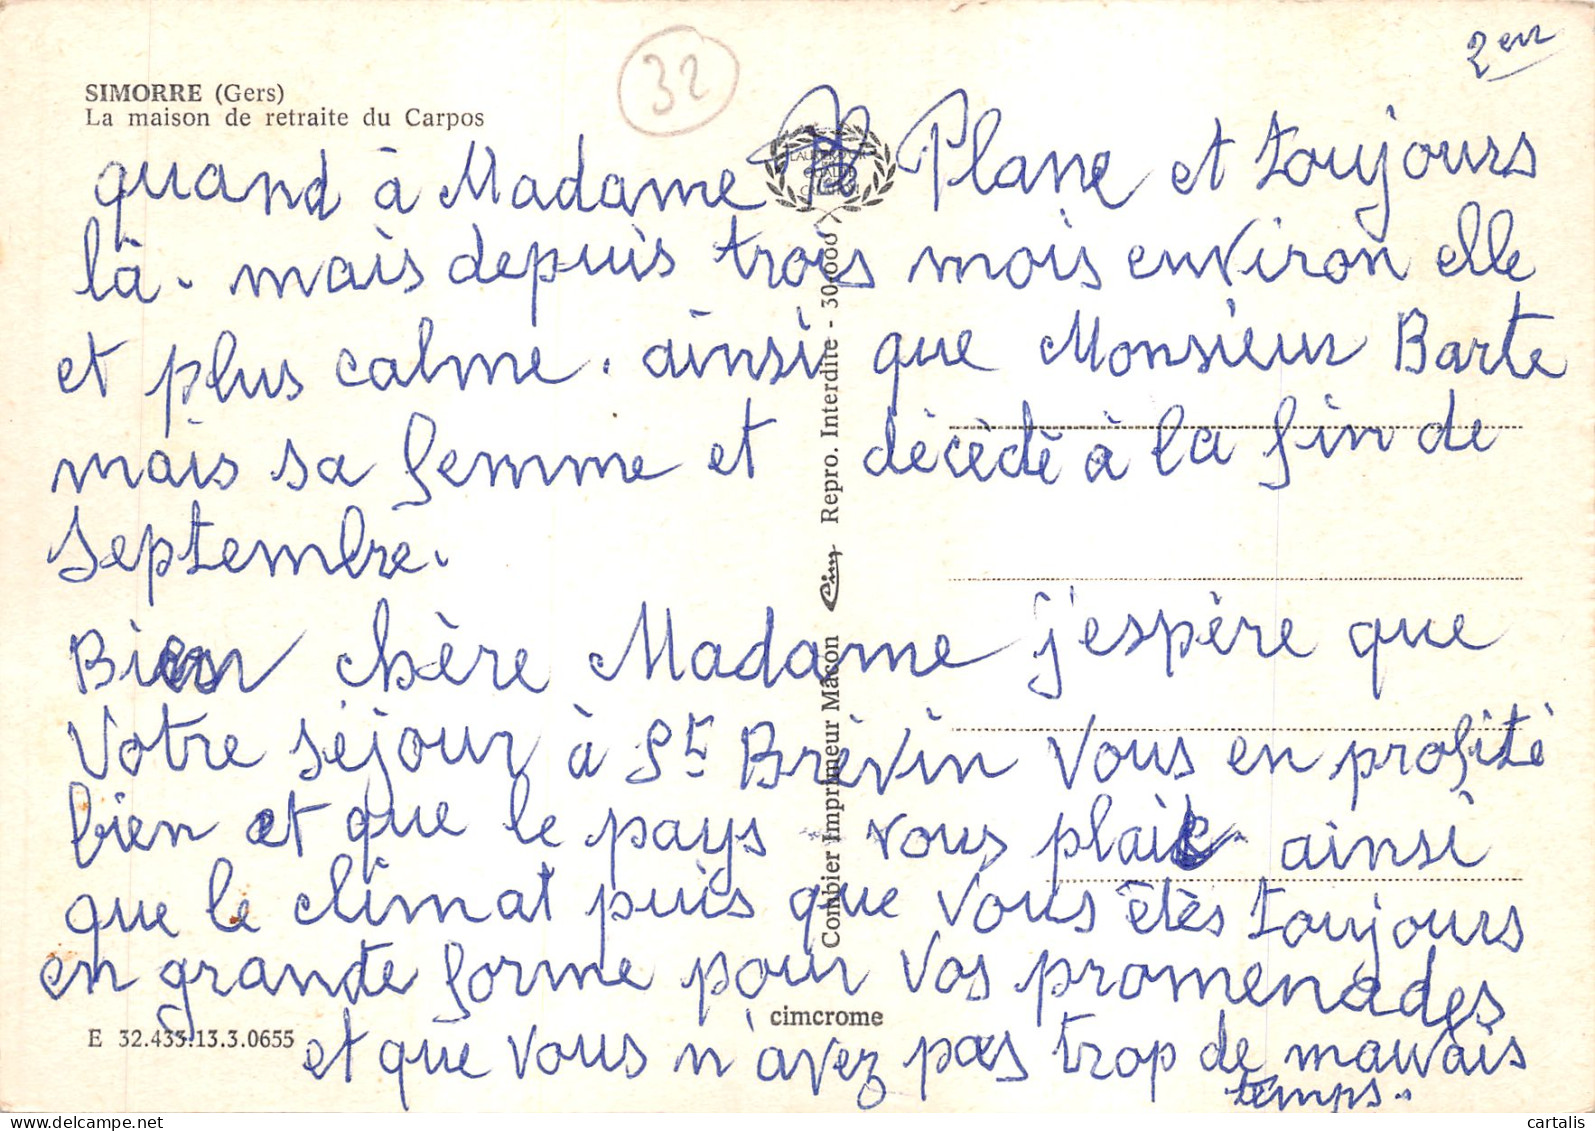 SIMORRE (Gers)
La maison de retraite du Carpos
32
2en
quand à Madame Plane et toujours
là. mais depuis trois mois environ elle
et plus calme. ainsi que Monsieur Barte
mais sa femme et décèdé à la fin de
Septembre.
Bien chère Madame j'espère que
Votre séjour à St Brévin vous en profité
bien et que le pays vous plait ainsi
que le climat puis que vous êtès toujours
en grande forme pour vos promenades
et que vous n'avez pas trop de mauvais
temps.
Combier Imprimeur Mâcon Cim Repro. Interdite - 30.000
cimcrome
E 32.433.13.3.0655
cartalis
delcampe.net